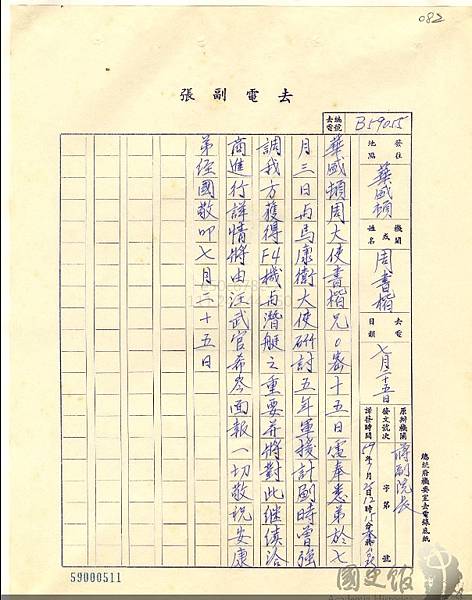 082
去電副張
去電編號
B59055
發往地點
華盛頓
機關或姓名
周書楷
去電日期
七月二十五日
原辦機關
蔣副院長
發文號次
字第號
譯發時間
59年7月25日12時15分
總統府機要室去電錄底紙
華盛頓周大使書楷兄0密十五日電奉悉弟於七
月三日與馬康衛大使研討五年軍援計劃時曾強
調我方獲得F4機與潛艇之重要并將對此繼續洽
商進行詳情將由汪武官希苓面報一切敬祝安康
弟經國敬叩七月二十五日
59000511
國史館